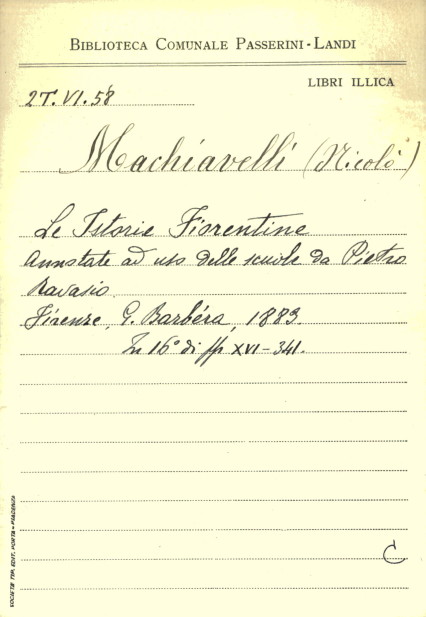 BIBLIOTECA COMUNALE PASSERINI-LANDI
LIBRI ILLICA
2T.VI.58
Machiavelli (Nicolò)
Le Istorie Fiorentine
Annotate ad uso delle scuole da Pietro
Ravasio.
Firenze, G. Barbéra, 1883
In 16° di pp XVI-341.
C
SOCIETÀ TIP. EDIT. PORTA-PIACENZA